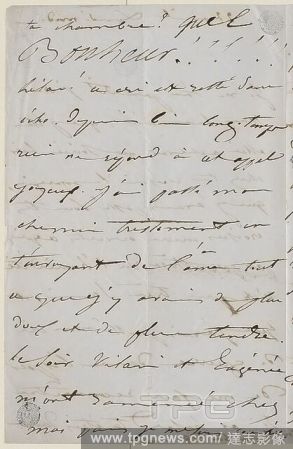 ta chambre! quel
Bonheur!!!!!
hélas! ce cri est resté sans
écho. Depuis bien longtemps
rien ne répond à cet appel
joyeux. j'ai passé mon
chemin tristement en
de l'âme tout
ce que j'y avais de plus
doux et de plus tendre.
le soir et Eugénie
m'ont ramenée chez
moi
TPG
www.tpgnews.com / 達志影像